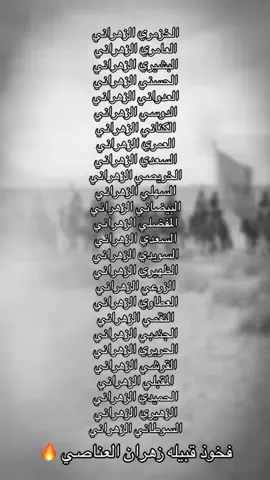 الخزمري الزهراني
العامري الزهراني
البشيري الزهراني
الحسني الزهراني
العدواني الزهراني
الدوسي الزهراني
الكناني الزهراني
العمري الزهراني
السعدي الزهراني
الخريصي الزهراني
السهلي الزهراني
البيضاني الزهراني
المفضلي الزهراني
السعدي الزهراني
السويدي الزهراني
الظهيري الزهراني
الزرعي الزهراني
العطاوي الزهراني
النقمي الزهراني
الجندبي الزهراني
الحريري الزهراني
القرشي الزهراني
المقبلي الزهراني
الحميدي الزهراني
الزهيري الزهراني
السوطاني الزهراني
فخوذ قبيله زهران العناصي 🔥